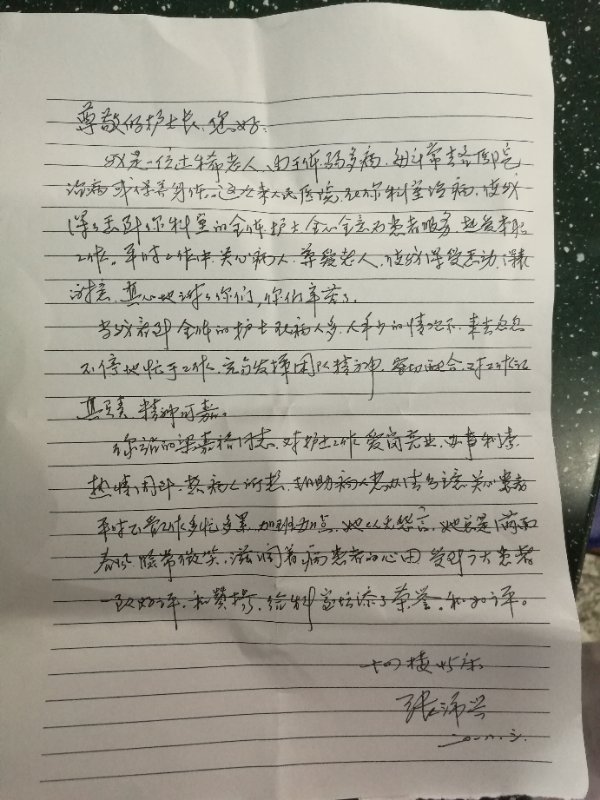 尊敬的护士长、您好.
我是一位古稀老人、由于体弱多病、每年常去各医院
治病或保养身体。这次来人民医院、在你科室治病、使我
深受感到你科室的全体护士全心全意为患者服务、
工作。平时工作中、关心病人、尊爱老人、使我深受感动、深表
谢意、真心地谢谢你们、你们辛苦了。
当我看到全体的护士在病人多、人手少的情况下、来去匆匆
不停地忙于工作、充分发挥团队精神、密切配合、对工作认
真负责、精神可嘉。
你院的梁嘉裕同志、对护士工作爱岗敬业、办事利索
热情周到、帮助病人关心患者
平时不管工作多忙多累、加班加点、她从无怨言、她总是满面
春风、脸带微笑、滋润着病患者的心田、受到广大患者
一致好评、和赞扬、给科室增添了荣誉、和好评。
十四楼
张沛兴